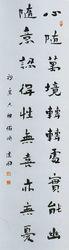 心隨萬境轉轉處實能幽
隨認得性無喜亦無憂